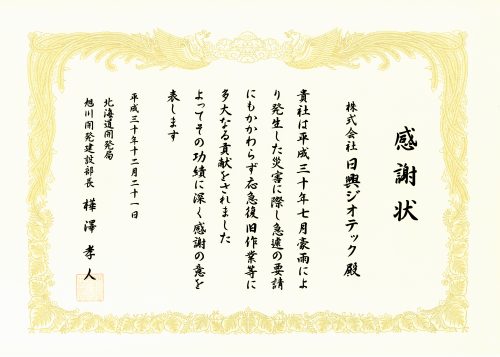 感謝状
株式会社 日興ジオテック 殿
貴社は平成三十年七月豪雨によ
り発生した災害に際し急遽の要請
にもかかわらず応急復旧作業等に
多大なる貢献をされました
よってその功績に深く感謝の意を
表します
平成三十年十二月二十一日
北海道開発局
旭川開発建設部長 樺澤孝人